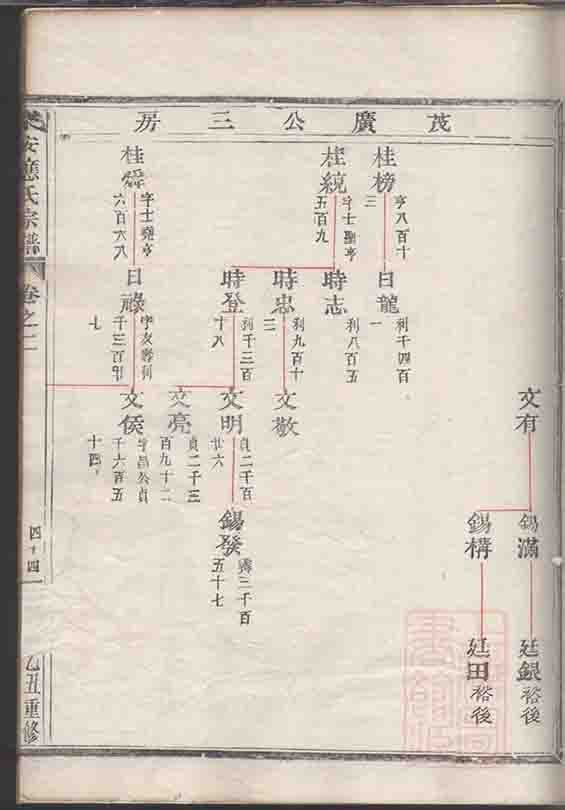 茂廣公三房
桂榜
亨八百十
三
桂統
五百九
桂舜
六百六八
日龍
利千四百
一
時志
利八百五
時忠
利九百十
時登
利千三百
十八
日祿
文有
文敬
文明
貞二千百
廿六
文亮
貞二千三
百九十二
文侯
字昌公貞
千六百五
十四
錫滿
錫構
錫發
三千百
五十七
廷銀裕後
廷田裕後
安應氏宗譜
卷之二
四十四
乙丑重修